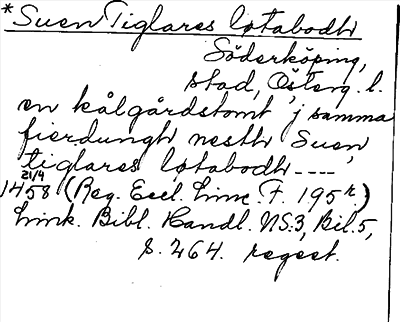 *Suen Tiglares løtabodh
Söderköping,
stad, Österg. l.
en kålgårdstomt j samma
fierdungh nesth Suen
tiglares løtabodh ----
21/9
1458 (Reg. Eccl. Linc. F. 195r)
Link. Bibl. Handl. NS:3, Bil. 5,
s. 264. regest.